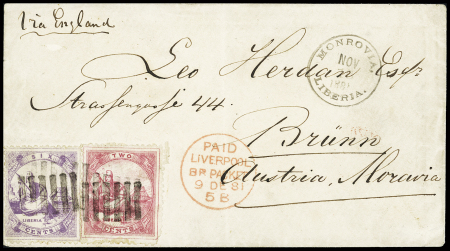 Via England
MONROVIA.
NOV
LIBERIA.
Leo Herdan Esqr.
Strassengasse 44.
Brünn
Austria, Moravia
PAID
LIVERPOOL
BR PACKET
9 DE 81
5B
SIX
LIBERIA
CENTS
TWO
CENTS